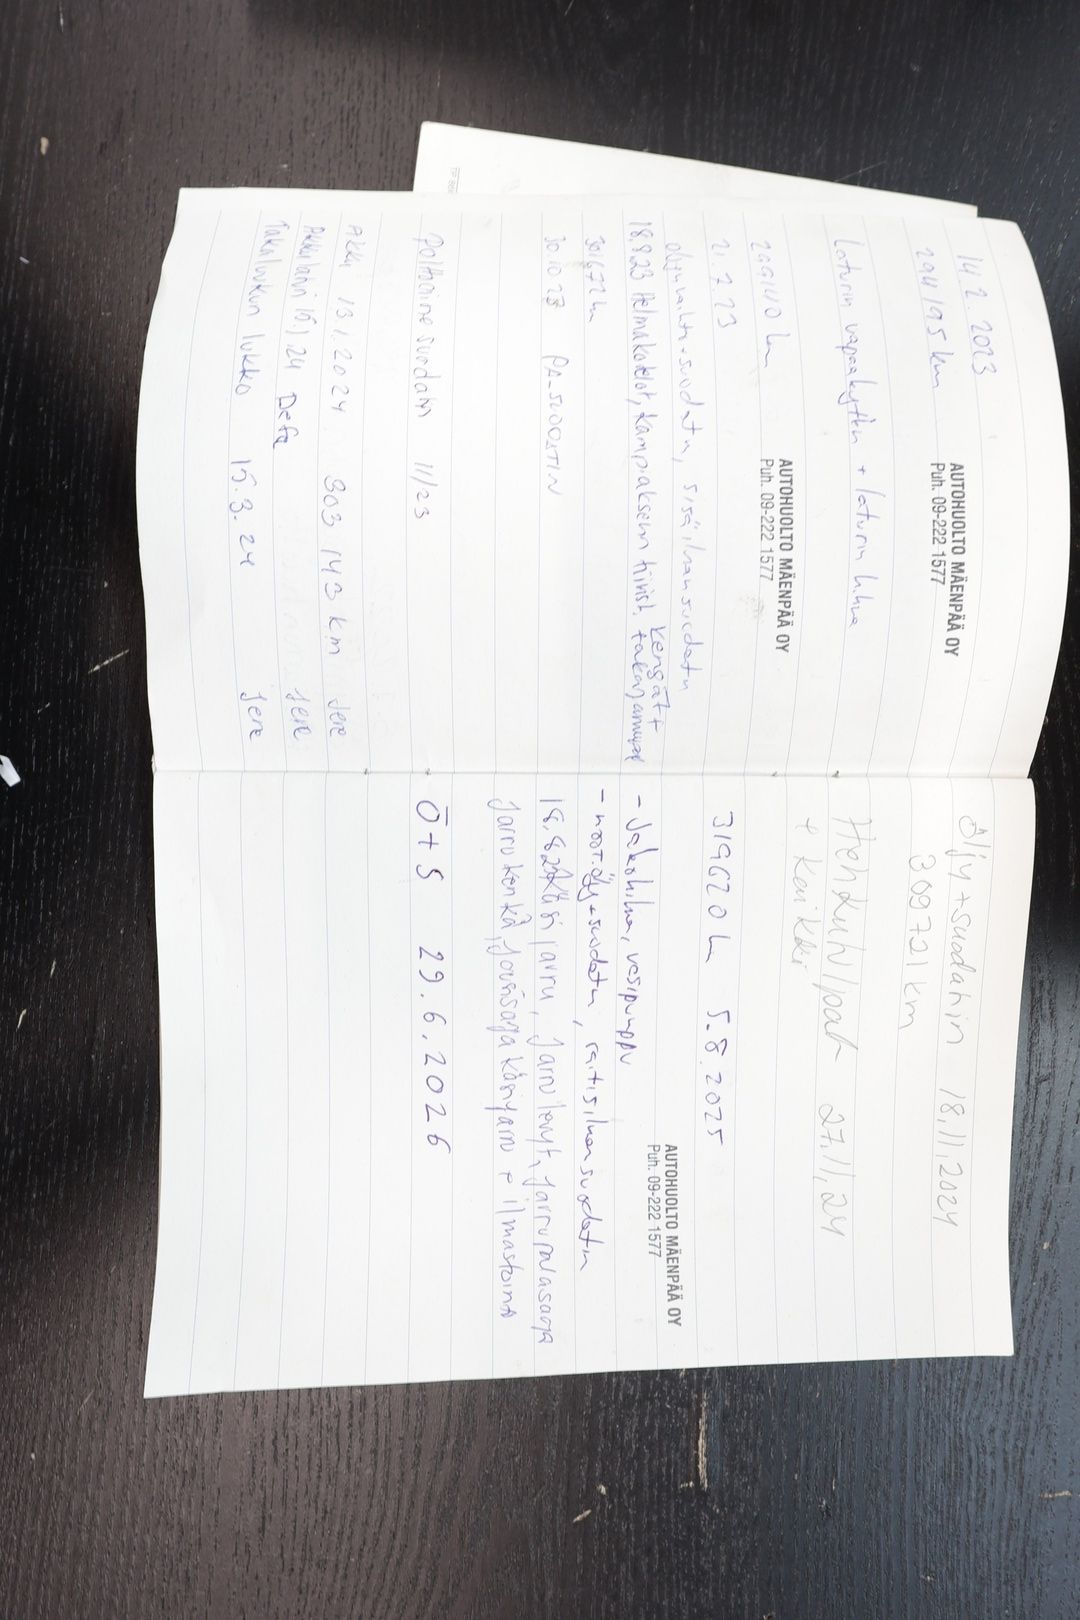 14.2.2023
294195 km
AUTOHUOLTO MÄENPÄÄ OY
Puh. 09-222 1577
Laturin vapaakytkin + laturin hihna
299140 km
AUTOHUOLTO MÄENPÄÄ OY
Puh. 09-222 1577
2.7.23
öljynvaihto+suodatin, sisäilmansuodatin
18.9.23 Helmakotelot, kampiakselin tiivist. kengät+
takajarrupal
301672 km
30.10.23 PA-SUODATIN
Polttoaine suodatin 11/23
Akku 13.1.2024 303 143 km Jere
Akkulaturi 15.1.24 Defa Jere
Takaluukun lukko 15.3.24 Jere
Öljy+suodatin 18.11.2024
309721 km
27.11.24
319620 km 5.8.2025
AUTOHUOLTO MÄENPÄÄ OY
Puh. 09-222 1577
- Jakohihna, vesipumppu
- moot.öljy+suodatin, raitisilmansuodatin
Käsijarru, Jarrulevyt, Jarrupalasarja
Jarrukenkä, Jousisarja käsijarru + ilmastointi
Ö+S 29.6.2026